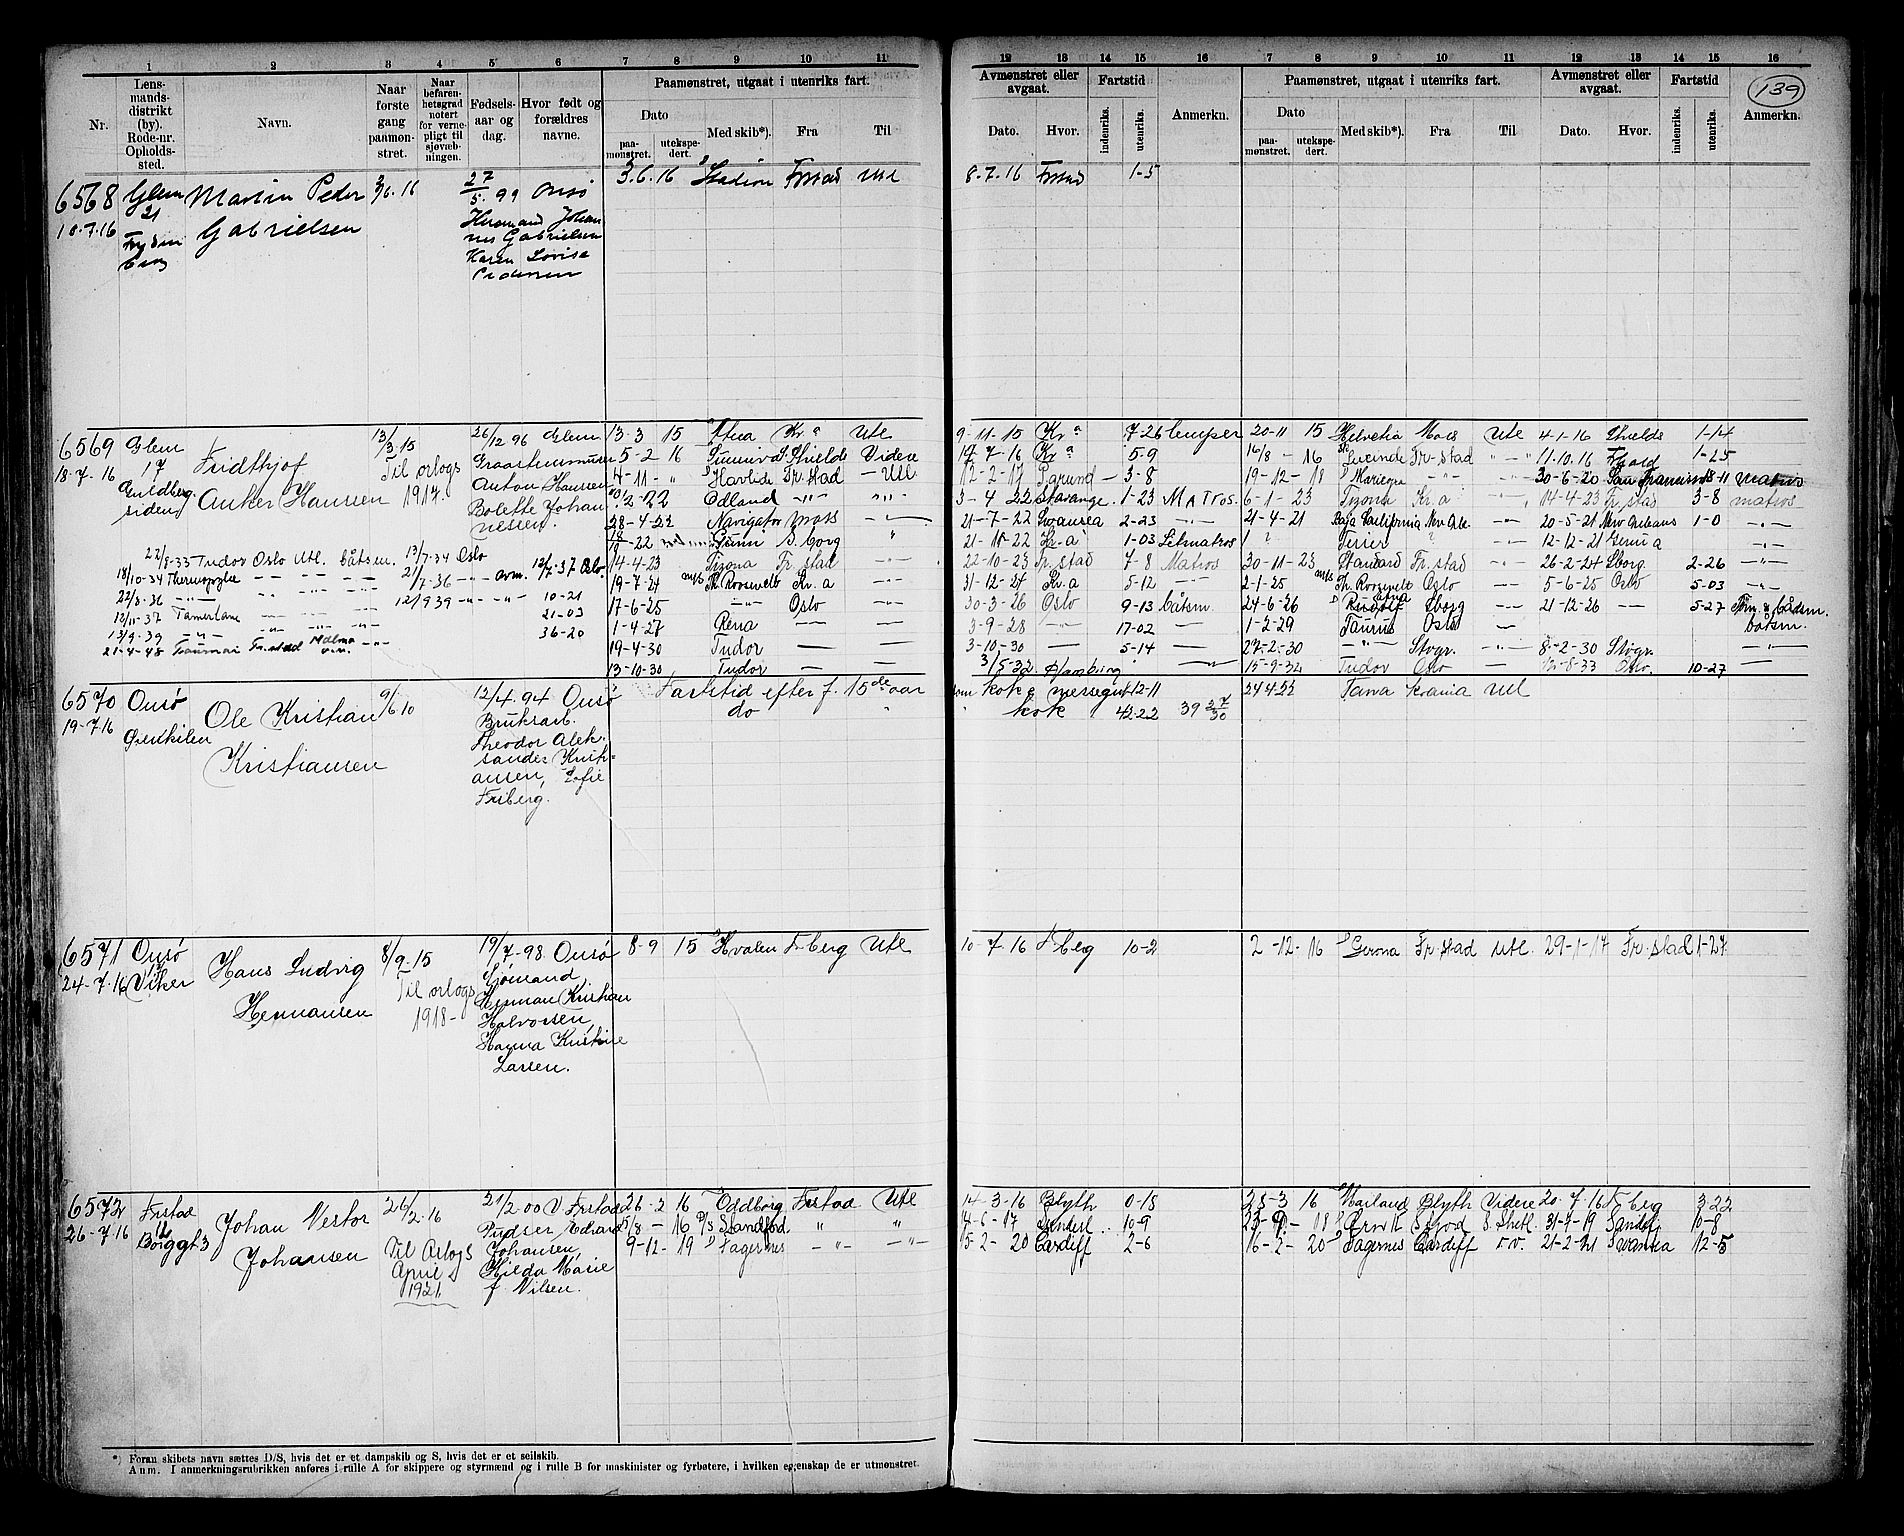 1 2 3 4 5 6 7 8 9 10 11
12 13 14 15 16 7 8 9 10 11 12 13 14 15 16
139
Nr.
Lens-
mands-
distrikt
(by).
Rode-nr.
Opholds-
sted.
Navn.
Naar
første
gang
paamøn-
stret.
Naar
befaren-
hetsgrad
notert
for verne-
pligt til
sjøvæb-
ningen.
Fødsels-
aar og
dag.
Hvor født og
forældres
navne.
Paamønstret, utgaat i utenriks fart.
Dato
paa-
mønstret.
utekspe-
dert.
Med skib*).
Fra
Til
Avmønstret eller
avgaat.
Dato.
Hvor.
Fartstid
indenriks.
utenriks.
Anmerkn.
Paamønstret, utgaat i utenriks fart.
Dato
paa-
mønstret.
utekspe-
dert.
Med skib*).
Fra
Til
Avmønstret eller
avgaat.
Dato.
Hvor.
Fartstid
indenriks.
utenriks.
Anmerkn.
6568
10.7.16
Glem
21
Martin Peder
Gabrielsen
3/6.16
27/5.99 Onsø
Hermand Johan
nes Gabrielsen
Karen Lovise
Pedersen
3.6.16 Stadion Frstad Utl
8.7.16 Frstad 1-5
6569
18-7-16
Glem
17
Guldberg
siden
Fridthjof
Anker Hansen
13/3.15
Til orlogs
1917.
26/12 96 Glem
Anton Hansen
Bolette Johan
nessen.
13-3 15 Kra Utl
9-11-15 Kra 7-26
20-11 15 Helvetia Moss Utl 4-1-16 Shields 1-14
5-2 16 Sunniva S. Shields Videre
17-7-16 Kra 5-9
16/8 - 16 Lucinde Fr.stad -"- 11.10.16 1-25
4-11-" Havlide Fr.stad - Utl
12-2-17 3-8
19-12-18 30-6-20 San Francisco 18-11 matros
Odland -"-
3-4 22 Stavange. 1-23 Matros.
6-1-23 Tyzona Kr.a 14-4-23 Fr.stad 3-8 matros
28-4-22 Navigator Moss
21-7-22 Swansea 2-23 -"-
21-4-21 Baja California New Ole. 20-5-21 New Orleans 1-0 -"-
S.borg
21-11-22 Kr.a 1-03 Letmatros
12-12-21 Genua -"-
14-4-23 Tyzona Fr.stad -"-
22-10-23 Fr.stad 7-8 Matros
30-11-23 Standard Fr.stad 26-2-24 Sborg 2-26 -"-
19-7-24 m/s Th. Roosevelt Kr.a -"-
31-12-24 Kr.a 5-12 -"-
2-1-25 m/s Th. Roosevelt Oslo 5-6-25 Oslo 5-03 -"-
17-6-25 -"- Oslo -"-
30-3-26 Oslo 9-13 båtsm.
24-6-26 Rudolf Sborg 21-12-26 5-27 Tøm & båtsm.
1-4-27 Rena -"-
3-9-28 17-02 -"-
1-2-29 Taurus Oslo båtsm.
19-4-30 Tudor
3-10-30 5-14
27-2-30 -"- Stvgr. 8-2-30 Stvgr.
13-10-30 Tudor
3/5-32 Hamburg
15-9-32 Tudor Oslo 13-8-33 Oslo. 10-27
22/8-33 Tudor Oslo Utl. båtsm. 13/7-34 Oslo
18/10-34 Thermopylæ 21/7-36 avm. 12/7-37 Oslo
22/8-36 12/9 39 10-21
12/11-37 Tamerlane 21-03
13/9-39 36-20
21-4-48 Fr.stad Malmø
6570
19-7-16
Onsø
Ole Kristian
Kristiansen
9/6 10
12/4.94 Onsø
Bruksarb.
Theodor Alek-
sander Krist-
iansen, Sofie
Friberg.
Fartstid efter f. 15de aar
do
som kok & messegut 12-11
" kok 42-22 39 27/30
24 4 52 Tana Krania Utl
6571
24-7-16
Onsø
Viker
Hans Ludvig
Hermansen
8/9.15
Til orlogs
1918-
19/7-98 Onsø
Sjømand
Herman Kristian
Halvorsen,
Hanna Kristine
Larsen.
8-9 15 Hvalen Frberg Utl
10-7-16 Frberg 10-2
2-12-16 Gerona Fr.stad Utl. 29-1-17 Fr.stad 1-27
6572
26-7-16
Fristad
Borggt 3
Johan Nestor
Johansen
26/2.16
Til Orlogs
April
1921.
21/2.00 V. Frstad
Pudser Edvard
Johansen,
Hilda Marie
f. Nilsen.
26-2 16 Oddborg Frstad Utl
14-3-16 Blyth 0-18
28-3 16 Mailand Blyth Videre 20-7-16 Frberg 3-22
5/8 - 16 D/S Sandfjord " "
4-6-17 10-9
S. Shetl. 31-7-19 10-8
9-12-19 Fagernes -"- -"-
15-2-20 Cardiff 2-6
16-2-20 Fagernes Cardiff v.v. 21-2-21 Svansea 12-5
*) Foran skibets navn sættes D/S, hvis det er et dampskib og S, hvis det er et seilskib.
Anm. I anmerkningsrubrikken anføres i rulle A for skippere og styrmænd og i rulle B for maskinister og fyrbøtere, i hvilken egenskap de er utmønstret.